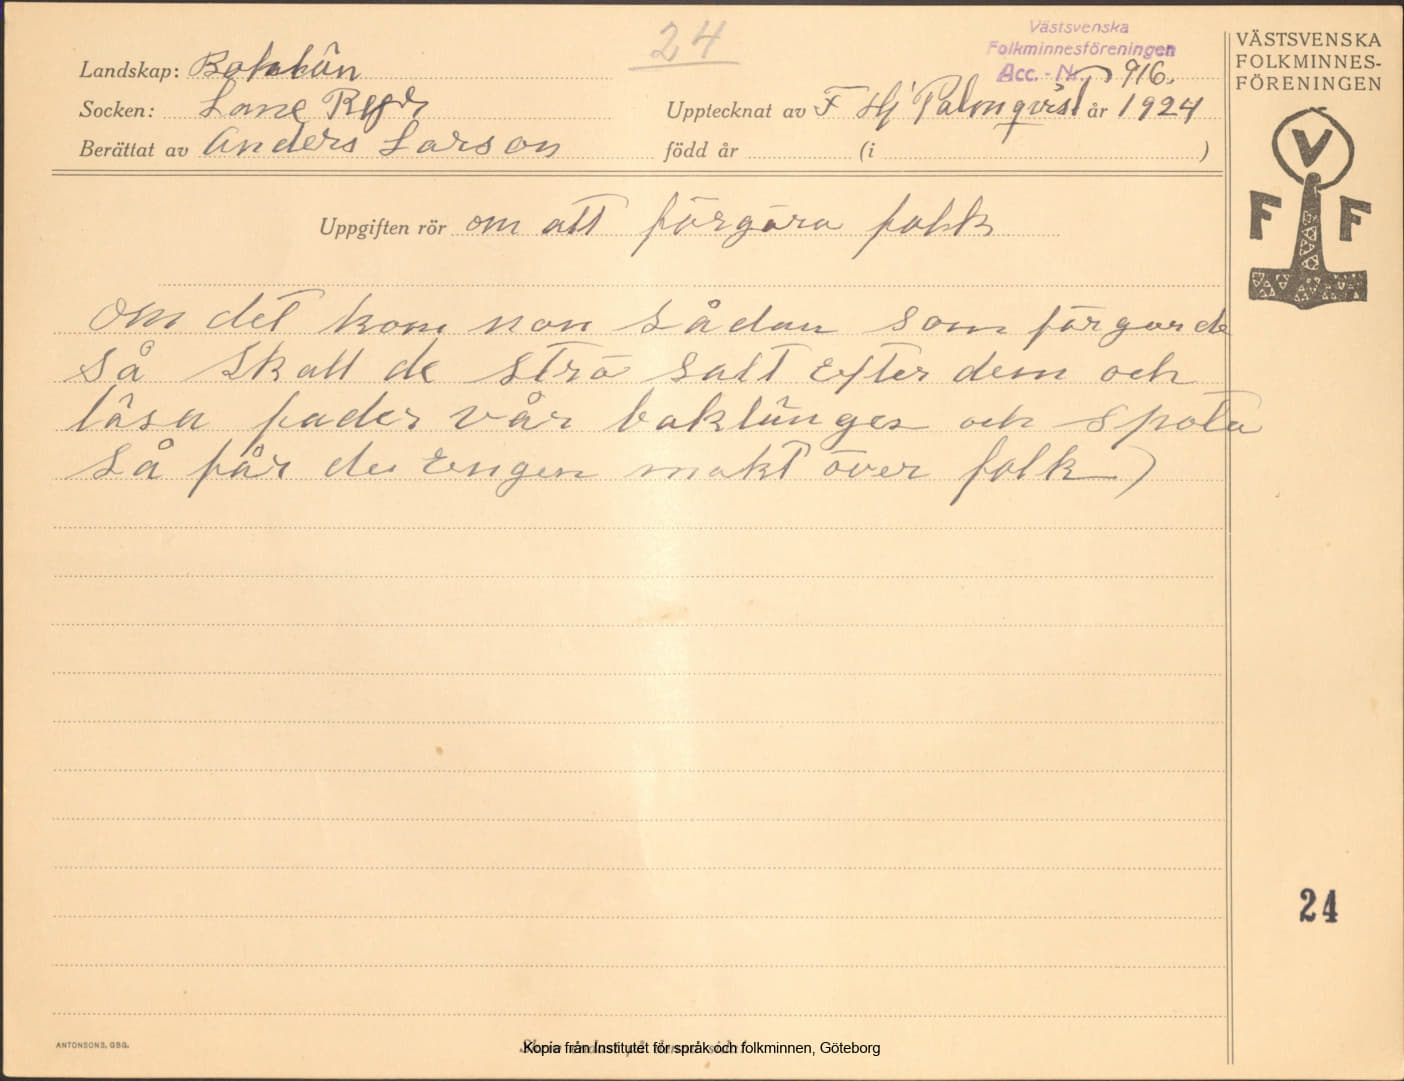 24
Västsvenska
Folkminnesföreningen
Acc. - Nr. 916.
Landskap: Bohlän
Socken: Lane Ryer
Upptecknat av F Hj Palmqvist år 1924
Berättat av Anders Larson född år (i )
Uppgiften rör om att förgöra folk
Om det kom non sådan som förgorde
så skall de strö salt efter dem och
läsa fader vår baklänges och spota
så får de engen makt över folk)
VÄSTSVENSKA
FOLKMINNES-
FÖRENINGEN
V
F F
24
ANTONSONS, GBG.
Kopia från Institutet för språk och folkminnen, Göteborg